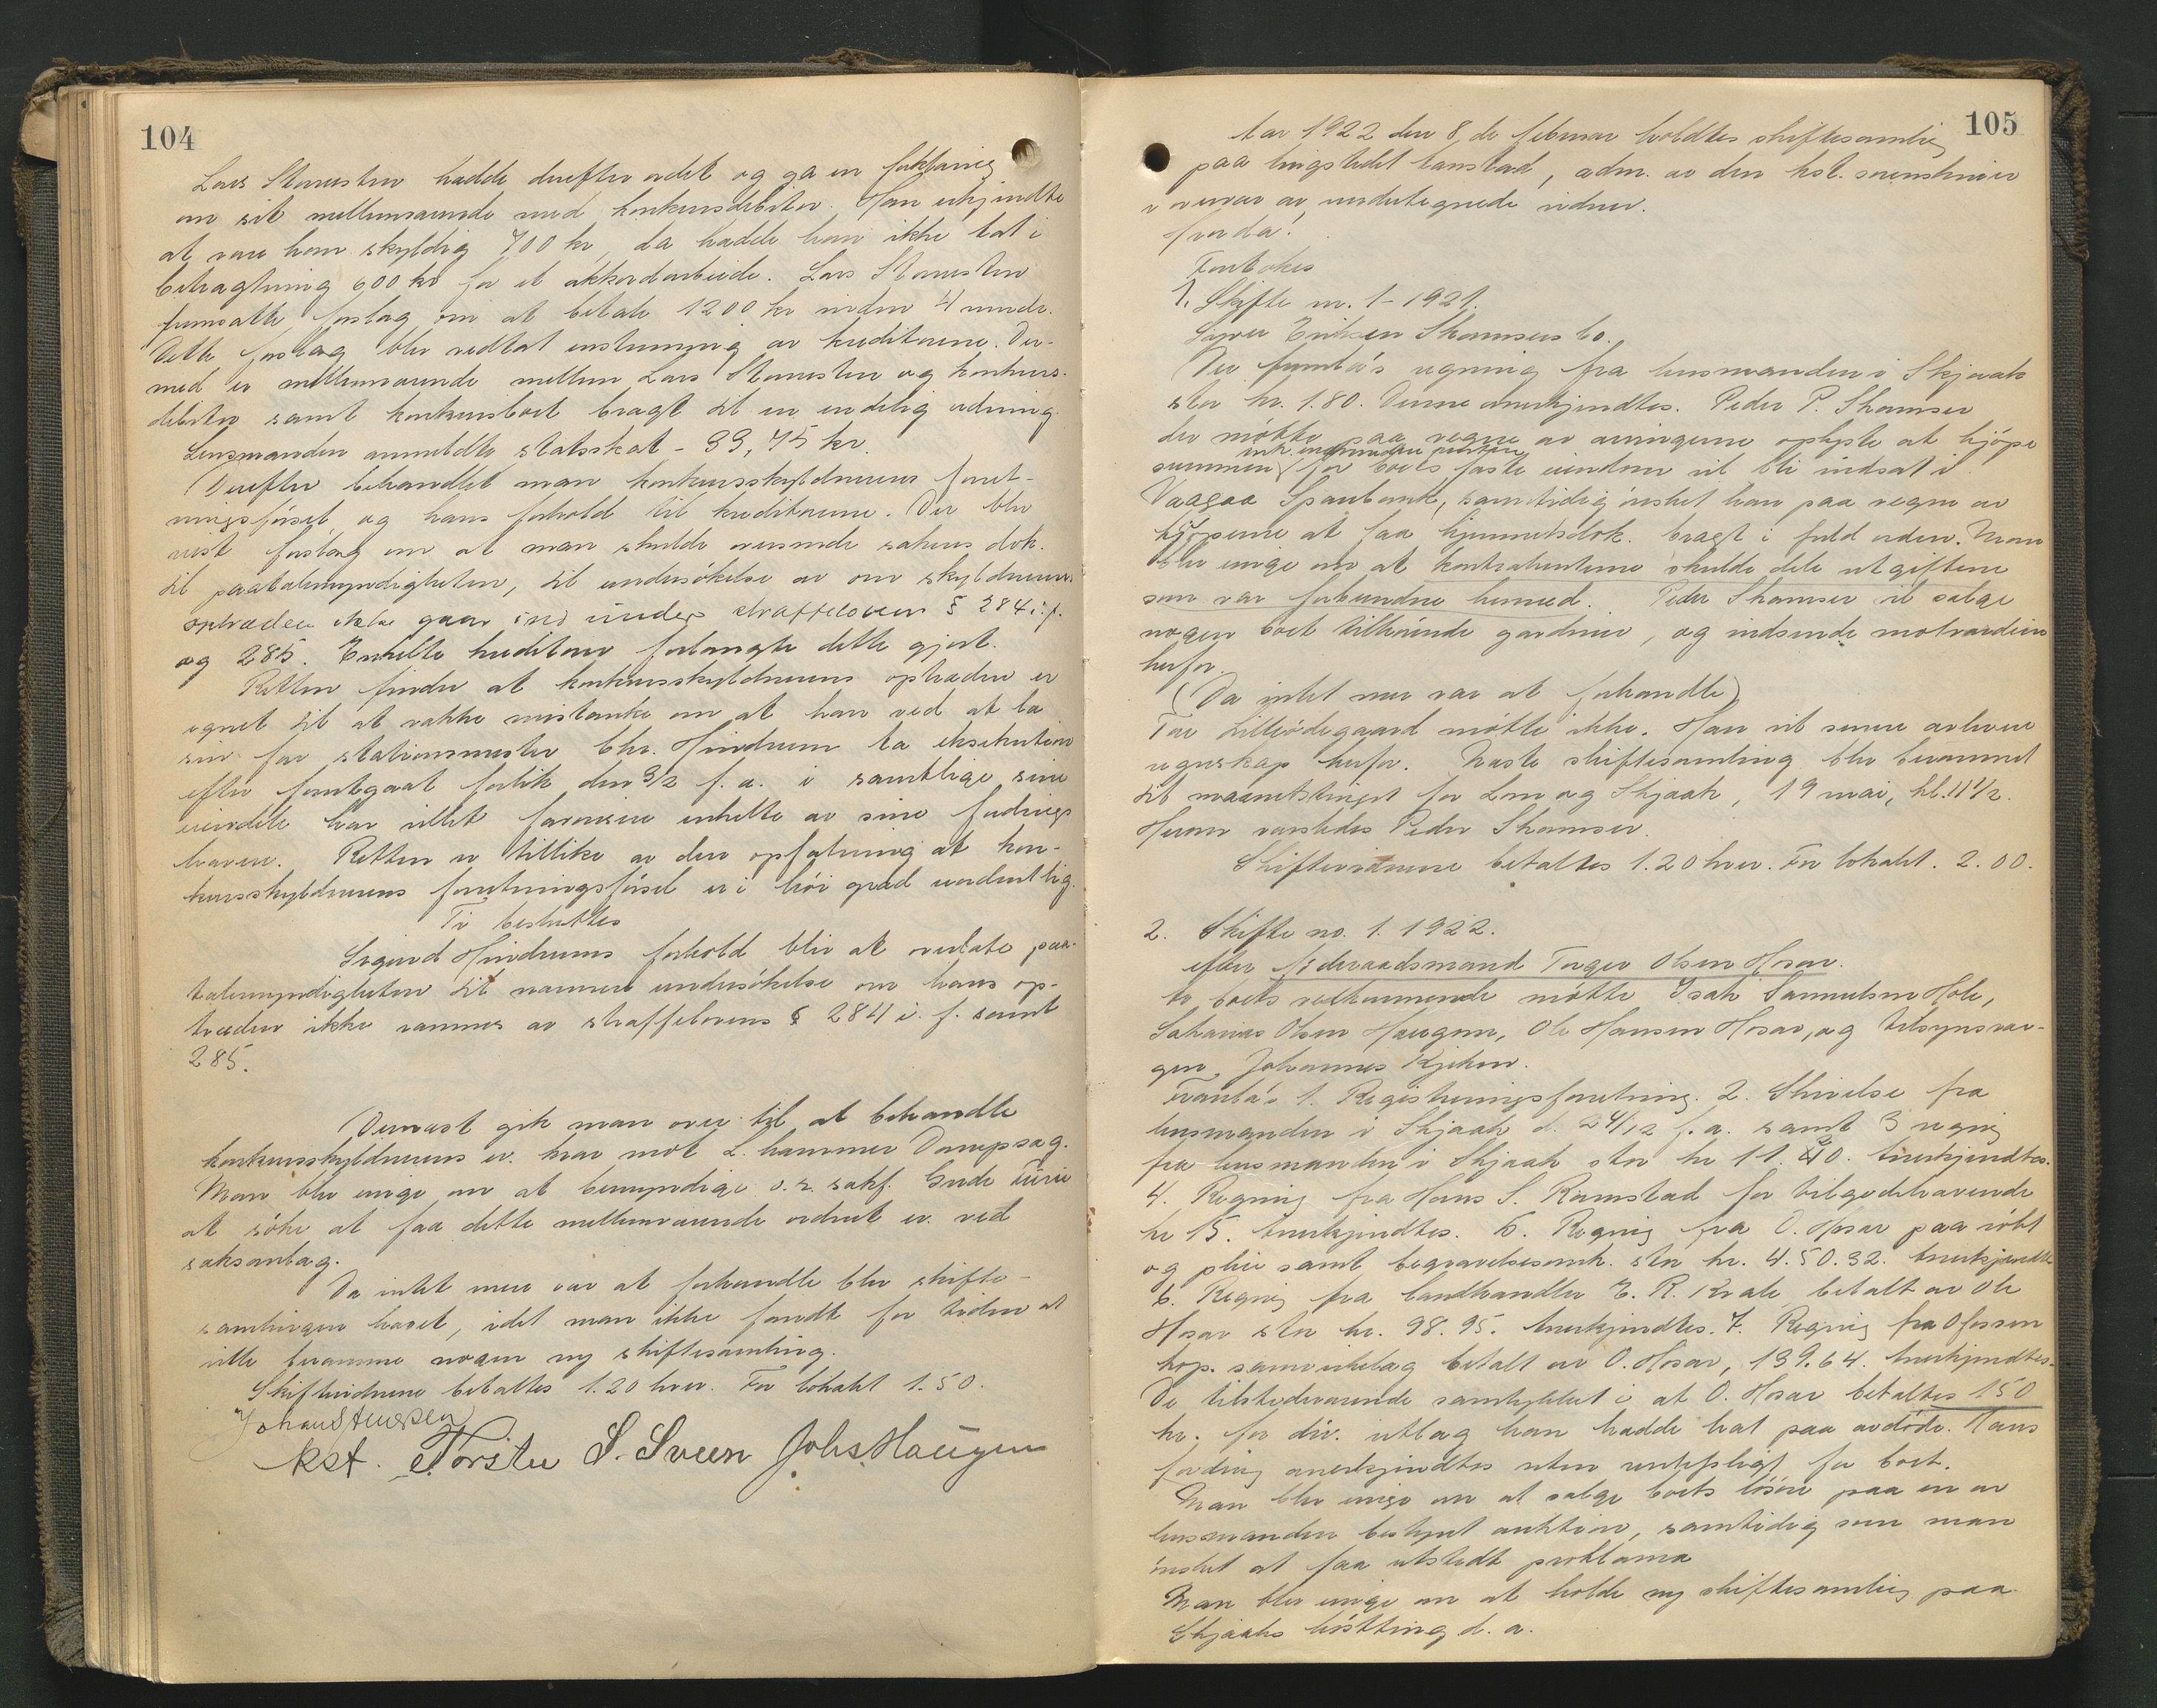 104
Lars Stamsten hadde derefter ordet og ga en forklaring
om sit mellemværende med konkursdebitor. Han erkjendte
at være ham skyldig 700 kr, da hadde han ikke tat i
betragtning 600 kr for et akkordarbeide. Lars Stamsten
fremsatte forslag om at betale 1200 kr inden 4 mndr.
Dette forslag blev vedtat enstemmig av kreditorene. Der-
med er mellemværende mellem Lars Stamsten og konkurs-
debitor samt konkursboet bragt til en endelig ordning.
Lensmanden anmeldte statsskat - 33,75 kr.
Derefter behandlet man konkursskyldnerens foret-
ningsførsel og hans forhold til kreditorene. Der blev
reist forslag om at man skulde oversende sakens dok.
til paatalemyndigheten, til undersøkelse av om skyldnerens
optræden ikke gaar ind under straffeloven § 284 i.f.
og 285. Enkelte kreditorer forlangte dette gjort.
Retten finder at konkursskyldnerens optræden er
egnet til at vække mistanke om at han ved at la
sin far stationsmester Chr. Hindrum ta eksekution
efter foretgaat forlik den 3/2 f.a. i samtlige sine
eiendele har villet forurene enkelte av sine fordrings
havere. Retten er tillike av den opfatning at kon-
kursskyldnerens foretningsførsel er i høi grad uordentlig.
Ti besluttes
Sigurd Hindrums forhold blir at overlate paa-
talemyndigheten til nærmere undersøkelse om hans op-
træden ikke rammes av straffelovens § 284 i.f. samt
285.
Dernæst gik man over til at behandle
konkursskyldnerens ev. krav mot L. hammer Dampsag.
Man blev enige om at bemyndige o.r. sakf. Gude
at søke at faa dette mellemværende ordnet ev. ved
saksanlæg.
Da intet mere var at forhandle blev skifte-
samlingen hævet, idet man ikke fandt for tiden at
ville beramme nogen ny skiftesamling.
Skiftevidnene betaltes 1.20 hver. For lokalet 1.50.
Johan Stuesen
kst. Torsten S. Sveen Johs Haugen
105
Aar 1922 den 8de februar holdtes skiftesamling
paa tingstedet Ramstad, adm. av den kst. sorenskriver
i nærvær av undertegnede vidner.
Hvorda:
Foretokes
1. Skifte nr. 1 - 1921.
Syver Eriksen Skamsers bo.
Der fremlaa's regning fra lensmanden i Skjaak
stor kr. 1.80. Denne anerkjendtes. Peder P. Skamser
der møtte paa vegne av arvingerne oplyste at kjøpe
summen for boets faste eiendom vil bli indsat i
Vaagaa Sparebank, samtidig ønsket han paa vegne av
kjøperne at faa hjemmelsdok. bragt i fuld orden. Man
blev enige om at kontrahenterne skulde dele utgiftene
som var forbundne hermed. Peder Skamser vil sælge
nogen boet tilhørende gardiner, og indsende motværdien
herfor.
(Da intet mer var at forhandle)
Tor Lilleødegaard møtte ikke. Han vil senere avlevere
regnskap herfor. Næste skiftesamling blev berammet
til maanetstinget for Lom og Skjaak, 19 mai, kl. 11 1/2.
Herom varsledes Peder Skamser.
Skiftevidnene betaltes 1.20 hver. For lokalet. 2.00.
2. Skifte no. 1. 1922.
efter føderaadsmand Torger Olsen Hosar.
Av boets vedkommende møtte Isak Samuelsen Hole,
Sakarias Olsen Haugen, Ole Hansen Hosar, og tilsynsvær-
gen Johannes Kjeken.
Fremlaa's 1. Registreringsforretning. 2. Skrivelse fra
lensmanden i Skjaak d. 24/12 f.a. samt 3 regning
fra lensmanden i Skjaak stor kr 11.40. Anerkjendtes.
4. Regning fra Hans S. Ramstad for tilgodehavende
kr 15. Anerkjendtes. 5. Regning fra O. Hosar paa røkt
og pleie samt begravelsesomk. stor kr. 4.50.32. Anerkjendtes
6. Regning fra landhandler E. R. Kvale betalt av Ole
Hosar stor kr. 98.95. Anerkjendtes. 7. Regning fra Ofossen
kop. samvirkelag betalt av O. Hosar, 139.64. Anerkjendtes.
De tilstedeværende samtykket i at O. Hosar betaltes 150
kr. for div. utlæg han hadde hat paa avdøde. Hans
fordring anerkjendtes uten for boet.
Man blev enige om at sælge boets løsøre paa en av
lensmanden bestyret auktion, samtidig som man
ønsket at faa utstedt proklama
Man blev enige om at holde ny skiftesamling paa
Skjaaks høstting d. a.